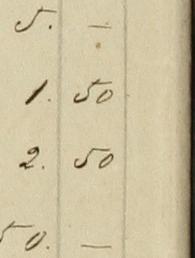 5. —
1. 50
2. 50
50. —